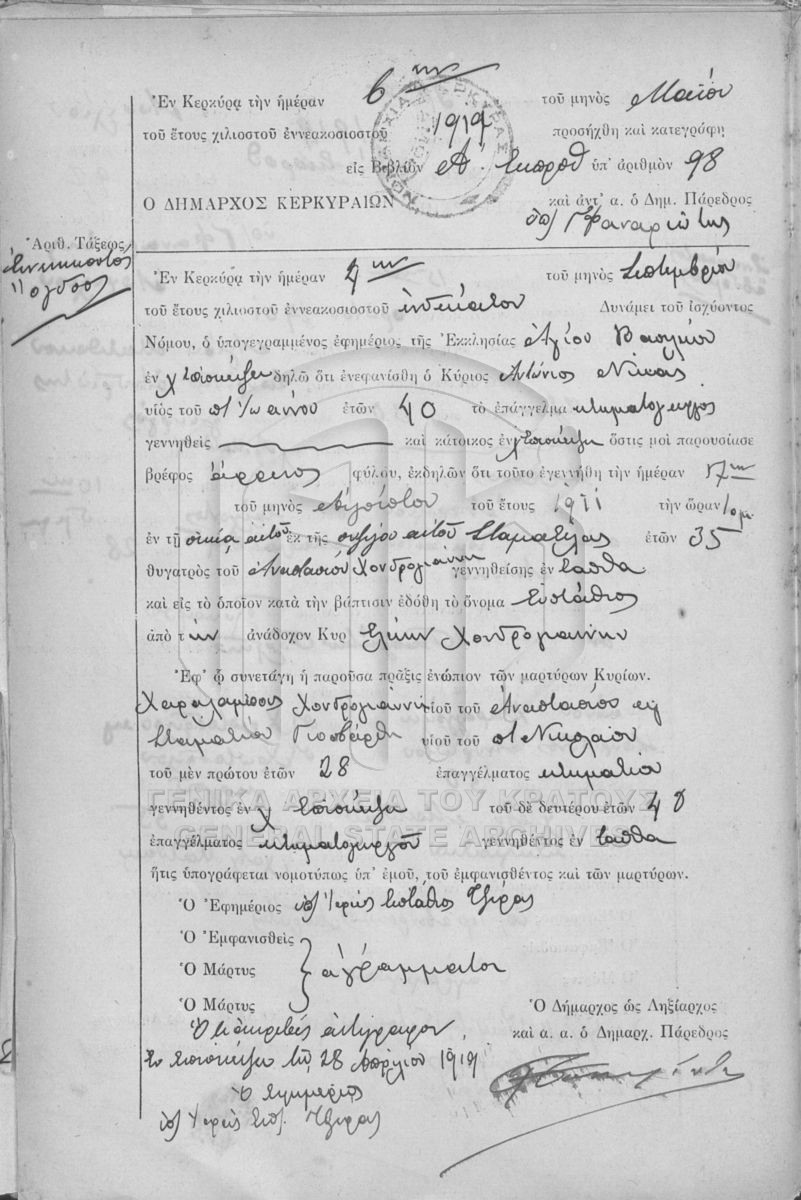 Ἐν Κερκύρᾳ τὴν ἡμέραν 6ην τοῦ μηνὸς Μαΐου
τοῦ ἔτους χιλιοστοῦ ἐννεακοσιοστοῦ 1919 προσήχθη καὶ κατεγράφη
εἰς Βιβλίον Α. Ἐκπροθ ὑπ' ἀριθμὸν 98
Ο ΔΗΜΑΡΧΟΣ ΚΕΡΚΥΡΑΙΩΝ καὶ ἀντ' α. ὁ Δημ. Πάρεδρος
ὑπ/ Γ Φαναριώτης
Ἀριθ. Τάξεως
Ἐννενηκοστὸς
ὄγδοος
Ἐν Κερκύρᾳ τὴν ἡμέραν 2ην τοῦ μηνὸς Σεπτεμβρίου
τοῦ ἔτους χιλιοστοῦ ἐννεακοσιοστοῦ ἑνδεκάτου Δυνάμει τοῦ ἰσχύοντος
Νόμου, ὁ ὑπογεγραμμένος ἐφημέριος τῆς Ἐκκλησίας Ἁγίου Βασιλείου
ἐν χ Ἐπίσκεψει δηλῶ ὅτι ἐνεφανίσθη ὁ Κύριος Ἀντώνιος Νίκας
υἱὸς τοῦ ποτ Ἰωάννου ἐτῶν 40 τὸ ἐπάγγελμα κτηματογεωργὸς
γεννηθεὶς καὶ κάτοικος ἐν χ Ἐπίσκεψει ὅστις μοὶ παρουσίασε
βρέφος ἄρρενος φύλου, ἐκδηλῶν ὅτι τοῦτο ἐγεννήθη τὴν ἡμέραν 17ην
τοῦ μηνὸς Αὐγούστου τοῦ ἔτους 1911 τὴν ὥραν
ἐν τῇ οἰκίᾳ αὐτοῦ ἐκ τῆς συζύγου αὐτοῦ Σταματέλας ἐτῶν 35
θυγατρὸς τοῦ Ἀναστασίου Χονδρογιάννη γεννηθείσης ἐν ἐνταῦθα
καὶ εἰς τὸ ὁποῖον κατὰ τὴν βάπτισιν ἐδόθη τὸ ὄνομα Εὐστάθιος
ἀπὸ τὴν ἀνάδοχον Κυρ Ἑλένην Χονδρογιάννην
Ἐφ' ᾧ συνετάγη ἡ παροῦσα πρᾶξις ἐνώπιον τῶν μαρτύρων Κυρίων.
Χαραλάμπους Χονδρογιάννη υἱοῦ τοῦ Ἀναστασίου καὶ
Σταματίου υἱοῦ τοῦ ποτ Νικολάου
τοῦ μὲν πρώτου ἐτῶν 28 ἐπαγγέλματος κτηματίου
γεννηθέντος ἐν χ Ἐπίσκεψει τοῦ δὲ δευτέρου ἐτῶν 40
ΓΕΝΙΚΑ ΑΡΧΕΙΑ ΤΟΥ ΚΡΑΤΟΥΣ
GENERAL STATE ARCHIVES
ἐπαγγέλματος κτηματογεωργοῦ γεννηθέντος ἐν ἐνταῦθα
ἥτις ὑπογράφεται νομοτύπως ὑπ' ἐμοῦ, τοῦ ἐμφανισθέντος καὶ τῶν μαρτύρων.
Ὁ Ἐφημέριος ὑπ/ Ἱερεὺς Εὐστάθιος Τζίρας
Ὁ Ἐμφανισθεὶς
Ὁ Μάρτυς ἀγράμματοι
Ὁ Μάρτυς Ὁ Δήμαρχος ὡς Ληξίαρχος
Ὅτι ἀκριβὲς ἀντίγραφον, καὶ α. α. ὁ Δημαρχ. Πάρεδρος
Ἐν Ἐπισκέψει τῇ 28 Ἀπριλίου 1919
Ὁ Ἐφημέριος
ὑπ/ Ἱερεὺς Εὐστ. Τζίρας